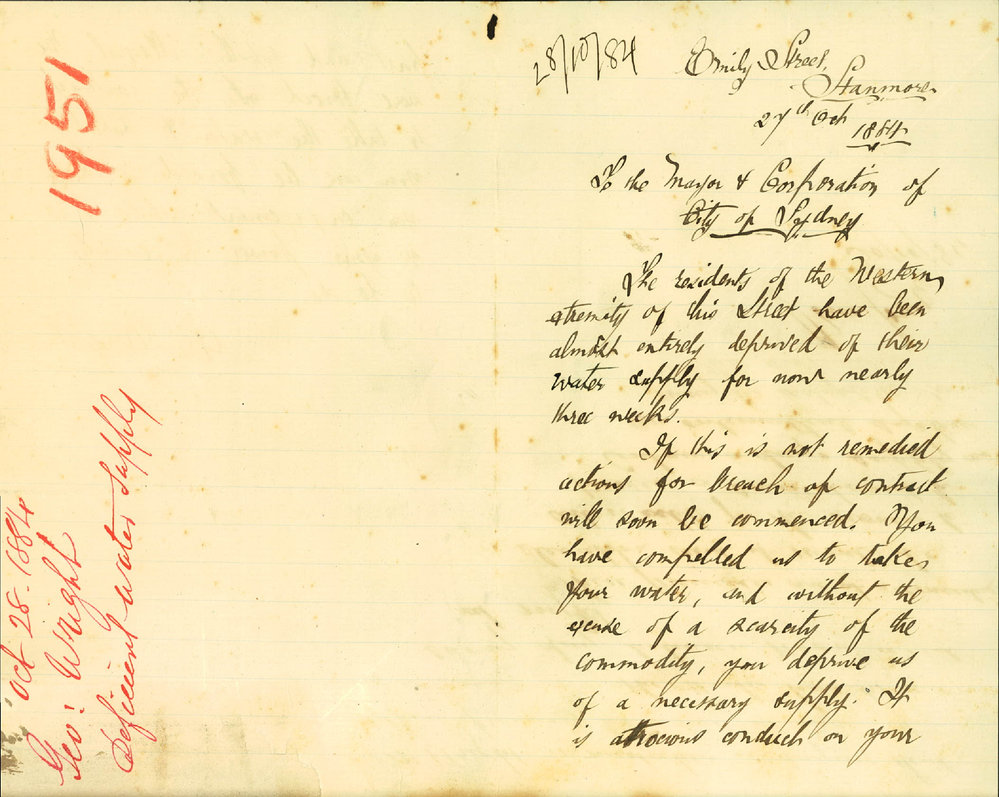 1951
Oct 28-1884
Geo: Wright
Deficient water supply
28/10/84
Emily Street,
Stanmore
27th Oct
1884
To the Mayor & Corporation of
City of Sydney
The residents of the Western
extremity of this Street have been
almost entirely deprived of their
water supply for now nearly
three weeks.
If this is not remedied
actions for breach of contract
will soon be commenced. You
have compelled us to take
your water, and without the
excuse of a scarcity of the
commodity, you deprive us
of a necessary supply. It
is atrocious conduct on your